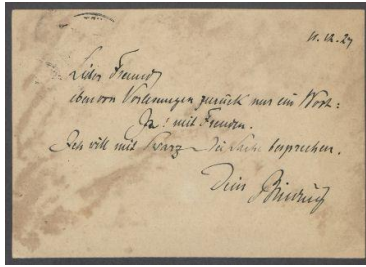 11.12.27
Lieber Freund,
eben von Vorlesungen zurück nur ein Wort:
Ja! mit Freuden.
Ich will mit die Sache besprechen.
Dein